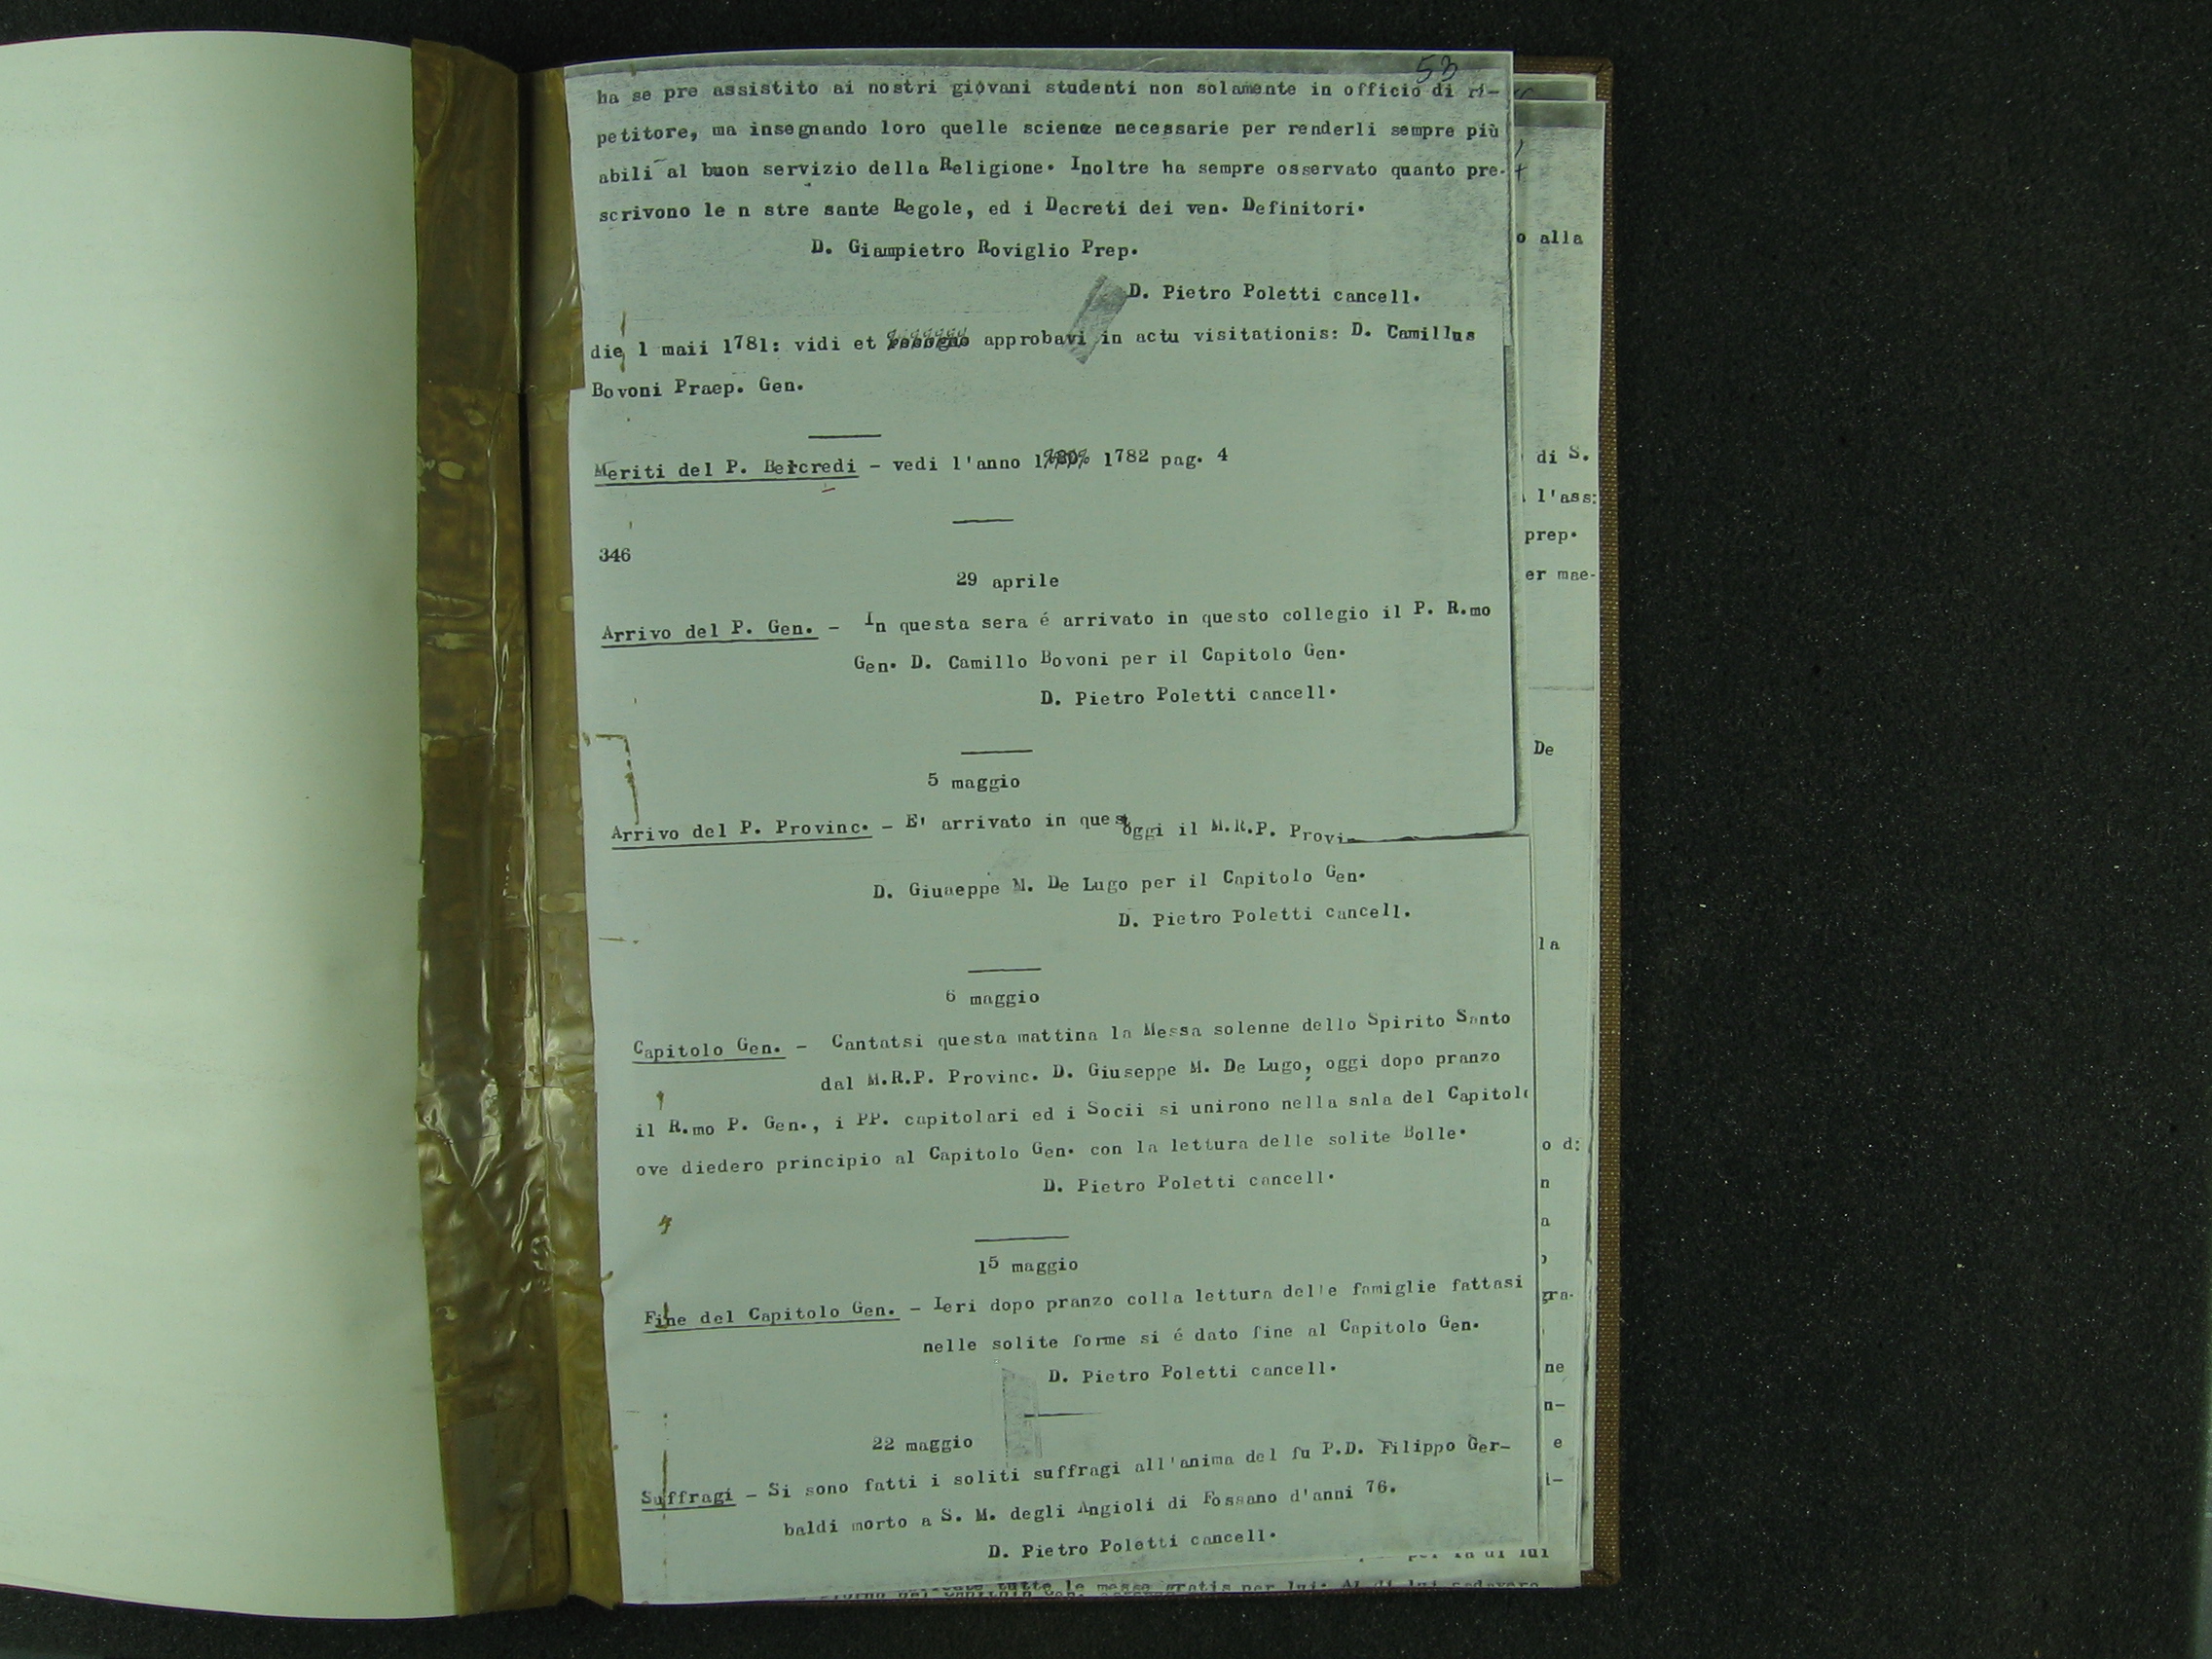 53
ha se pre assistito ai nostri giovani studenti non solamente in officio di ri-
petitore, ma insegnando loro quelle scienze necessarie per renderli sempre più
abili al buon servizio della Religione. Inoltre ha sempre osservato quanto pre-
scrivono le n stre sante Regole, ed i Decreti dei ven. Definitori.
D. Giampietro Roviglio Prep.
D. Pietro Poletti cancell.
die 1 maii 1781: vidi et approbavi in actu visitationis: D. Camillus
Bovoni Praep. Gen.
Meriti del P. Belcredi - vedi l'anno 1782 pag. 4
346
29 aprile
Arrivo del P. Gen. - In questa sera é arrivato in questo collegio il P. R.mo
Gen. D. Camillo Bovoni per il Capitolo Gen.
D. Pietro Poletti cancell.
5 maggio
Arrivo del P. Provinc. - E' arrivato in quest oggi il M.R.P. Provi
D. Giuaeppe M. De Lugo per il Capitolo Gen.
D. Pietro Poletti cancell.
6 maggio
Capitolo Gen. - Cantatsi questa mattina la Messa solenne dello Spirito Santo
dal M.R.P. Provinc. D. Giuseppe M. De Lugo, oggi dopo pranzo
il R.mo P. Gen., i PP. capitolari ed i Socii si unirono nella sala del Capitolo
ove diedero principio al Capitolo Gen. con la lettura delle solite Bolle.
D. Pietro Poletti cancell.
15 maggio
Fine del Capitolo Gen. - Ieri dopo pranzo colla lettura delle famiglie fattasi
nelle solite forme si é dato fine al Capitolo Gen.
D. Pietro Poletti cancell.
22 maggio
Suffragi - Si sono fatti i soliti suffragi all'anima del fu P.D. Filippo Ger-
baldi morto a S. M. degli Angioli di Fossano d'anni 76.
D. Pietro Poletti cancell.
o alla
di S.
l'ass:
prep.
er mae-
De
la
o d:
n
a
gra-
ne
n-
e
i-
tutte le messe gratis per lui: